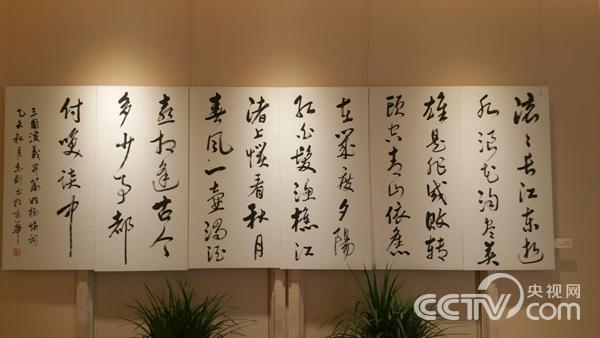 滚々長江东逝
水浪花淘尽英
雄是非成败转
頭空青山依舊
在几度夕陽
红白髮渔樵江
渚上惯看秋月
春风一壶浊酒
喜相逢古今
多少事都
付笑谈中
三国演義开篇明杨慎词
乙未秋月书於京華
CCTV.com 央视网